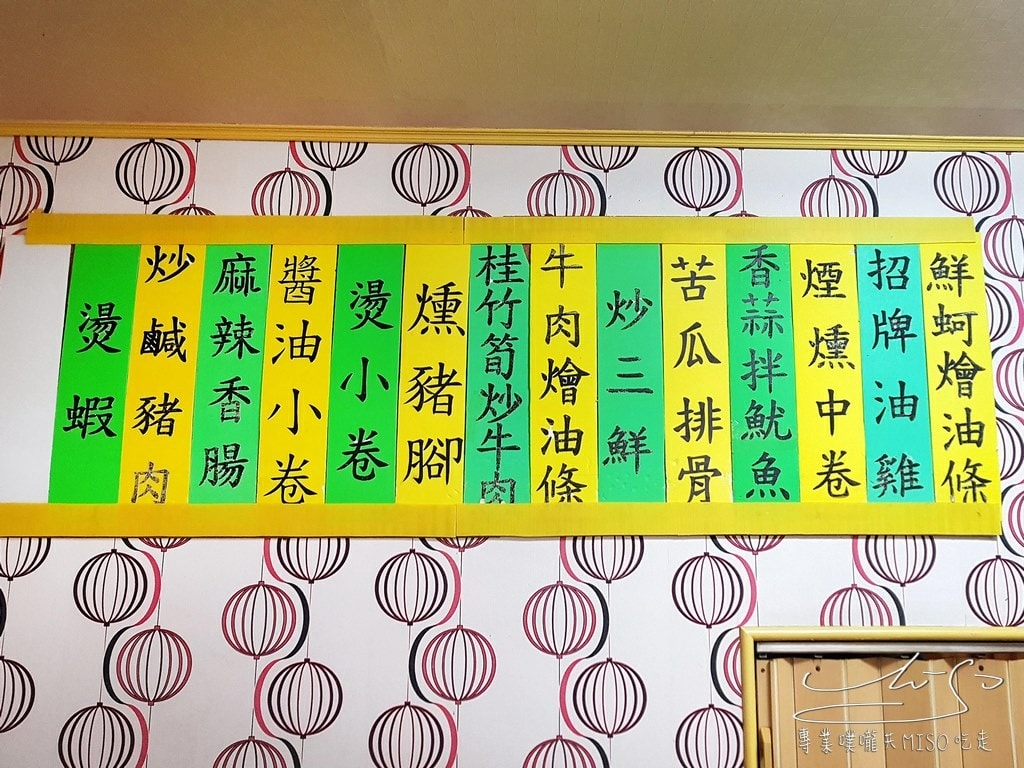 鮮蚵燴油條
招牌油雞
煙燻中卷
香蒜拌魷魚
苦瓜排骨
炒三鮮
牛肉燴油條
桂竹筍炒牛肉
燻豬腳
燙小卷
醬油小卷
麻辣香腸
炒鹹豬肉
燙蝦
專業噗嚨共MISO吃走